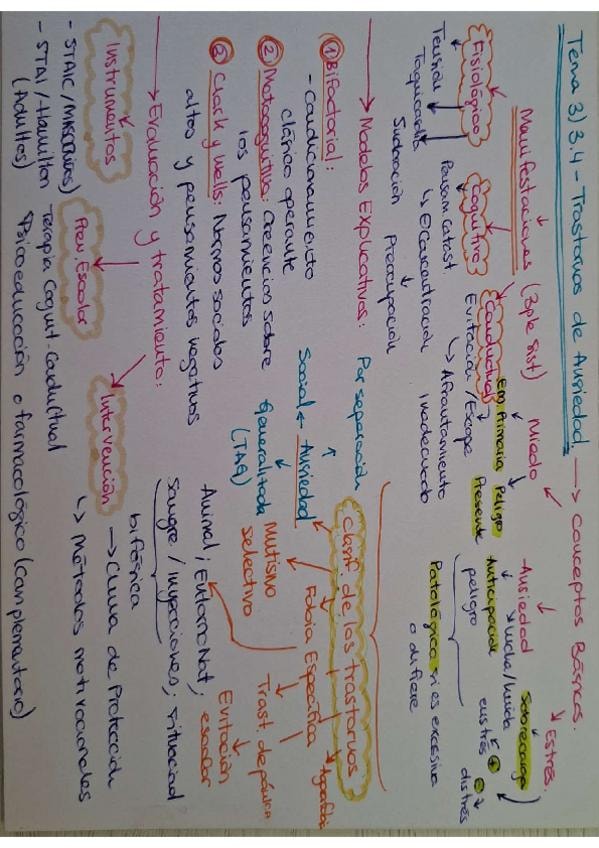 Tema 3) 3.4 - Trastornos de Ansiedad. → Conceptos Básicos.
Manifestaciones (3ple sist)
Fisiológico
Tensión
Taquicardia
Sudoración
Cognitivo
Pensam. Catast.
↳ Concentración
Preocupación
Conductual
Evitación / Escape
↳ Afrontamiento
inadecuado
Miedo
Em. Primaria
Peligro
Presente
↘ Lucha/huida
Ansiedad
Anticipación
peligro
Patológico si es excesiva
o difiere
Estrés.
Sobrecarga
eustrés + - distrés
→ Modelos Explicativos:
① Bifactorial:
- Condicionamiento
clásico operante
② Metacognitivo: Creencias sobre
los pensamientos
③ Clark y Wells: Normas sociales
altas y pensamientos negativos
Clasif. de los trastornos
Por separación
Social ← Ansiedad
Generalizada
(TAG)
Mutismo
selectivo
Fobia Específica
Animal; Entorno Nat;
Sangre / inyecciones; situacional
Trast. de pánico
Agorafobia
Evitación
escolar
→ Evaluación y tratamiento:
Instrumentos
- STAIC / MASC (niños)
- STAI / Hamilton
(Adultos)
Prev. Escolar
Intervención
Terapia Cognit. Conductual
Psicoeducación o farmacológico (complementario)
bifásica
→ Clima de Protección
↳ Métodos motivacionales